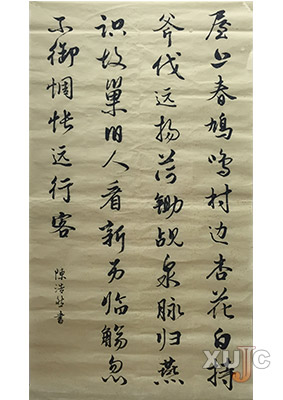 屋上春鸠鸣村边杏花白持
斧伐远扬荷锄觇泉脉归燕
识故巢旧人看新历临觞忽
不御惆怅远行客
陳浩书
XUJC